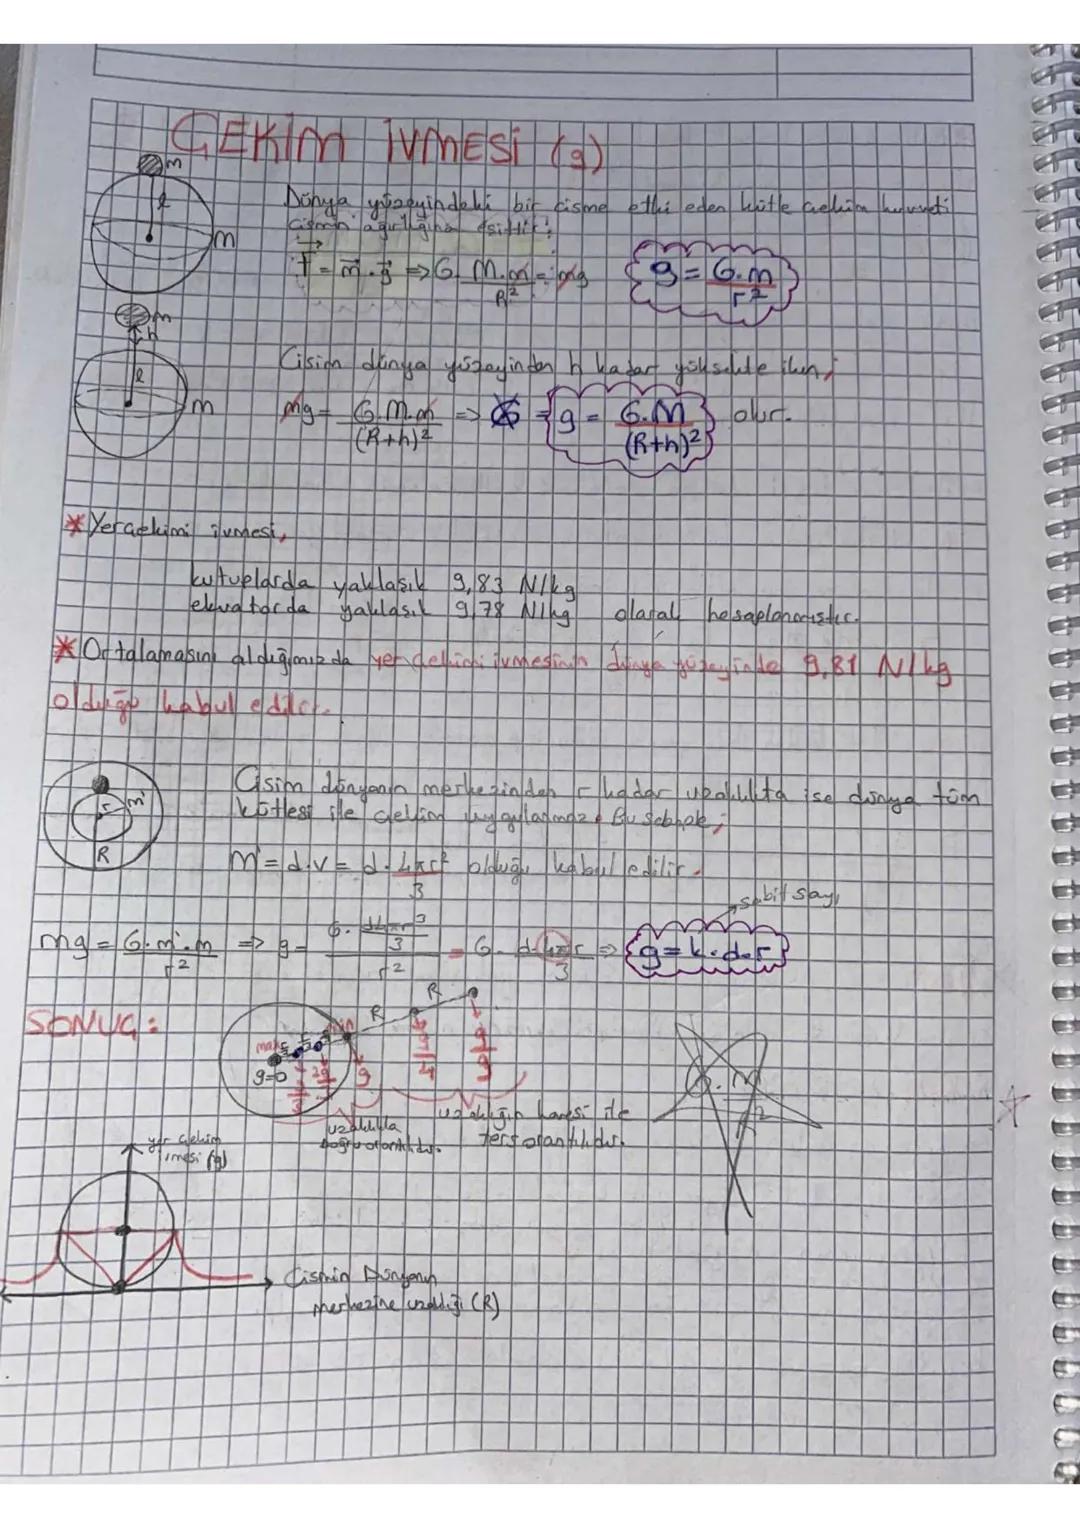 ÇEKİM İVMESİ (g)
m
R
m
Dünya yüzeyindeki bir cisme etki eden kütle çekim kuvveti
cismin ağırlığına eşittir;
F = m.g => G. M.m / R² = mg
g = G.m / r²
m
h
R
m
Cisim dünya yüzeyinden h kadar yüksekte iken;
mg = G.M.m / (R+h)² => g = G.M / (R+h)² olur.
* Yerçekimi ivmesi,
kutuplarda yaklaşık 9,83 N/kg
ekvatorda yaklaşık 9,78 N/kg olarak hesaplanmıştır.
* Ortalamasını aldığımızda yer çekimi ivmesinin dünya yüzeyinde 9,81 N/kg
olduğu kabul edilir.
r m'
R
Cisim dünyanın merkezinden r kadar uzaklıkta ise dünya tüm
kütlesi ile çekim uygulanmaz. Bu sebple;
m' = d.v = d. 4πr² / 3 olduğu kabul edilir.
sabit sayı
mg = G.m'.m / r² => g = G. d4πr³/3 / r² = G. d.4πr / 3 => g = k.d.r
SONUÇ:
R
R
g=0
2g/3
g
g/4
g/9
uzaklıkla
doğru orantılıdır.
uzaklığın karesi ile
ters orantılıdır.
yer çekim
ivmesi (g)
Cismin Dünyanın
merkezine uzaklığı (R)